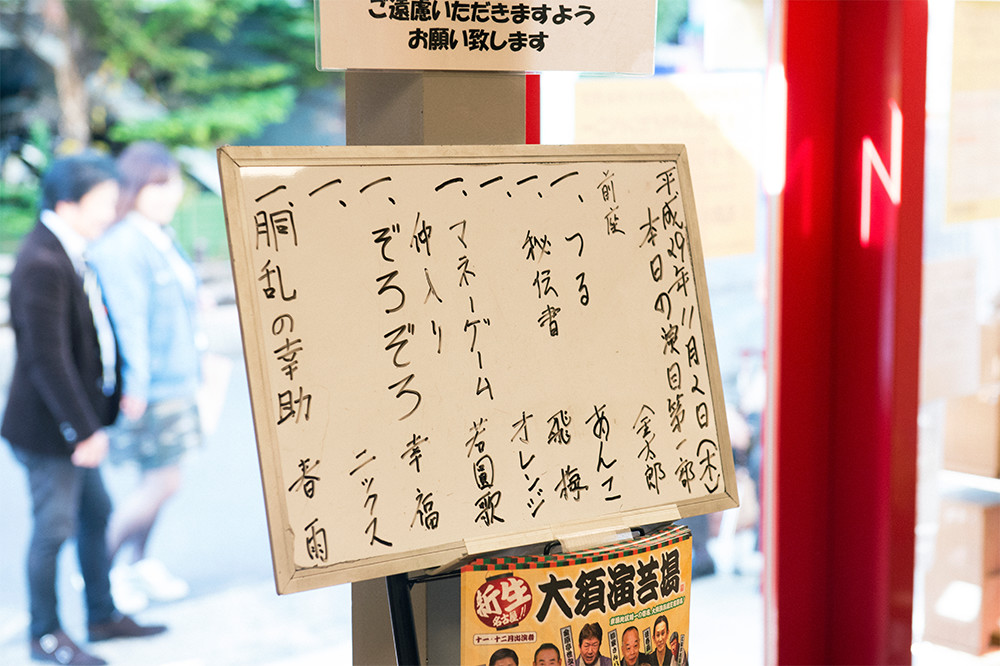 ご遠慮いただきますよう
お願い致します
平成29年11月2日(木)
本日の演目第一部
前座 金太郎
一、つる あんこ
一、秘伝書 飛梅
一、 オレンジ
一、マネーゲーム 若圓歌
仲入り
一、ぞろぞろ 幸福
一、 ニックス
一、胴乱の幸助 春雨
新生
名古屋!!
大須演芸場
十一・十二月出演者